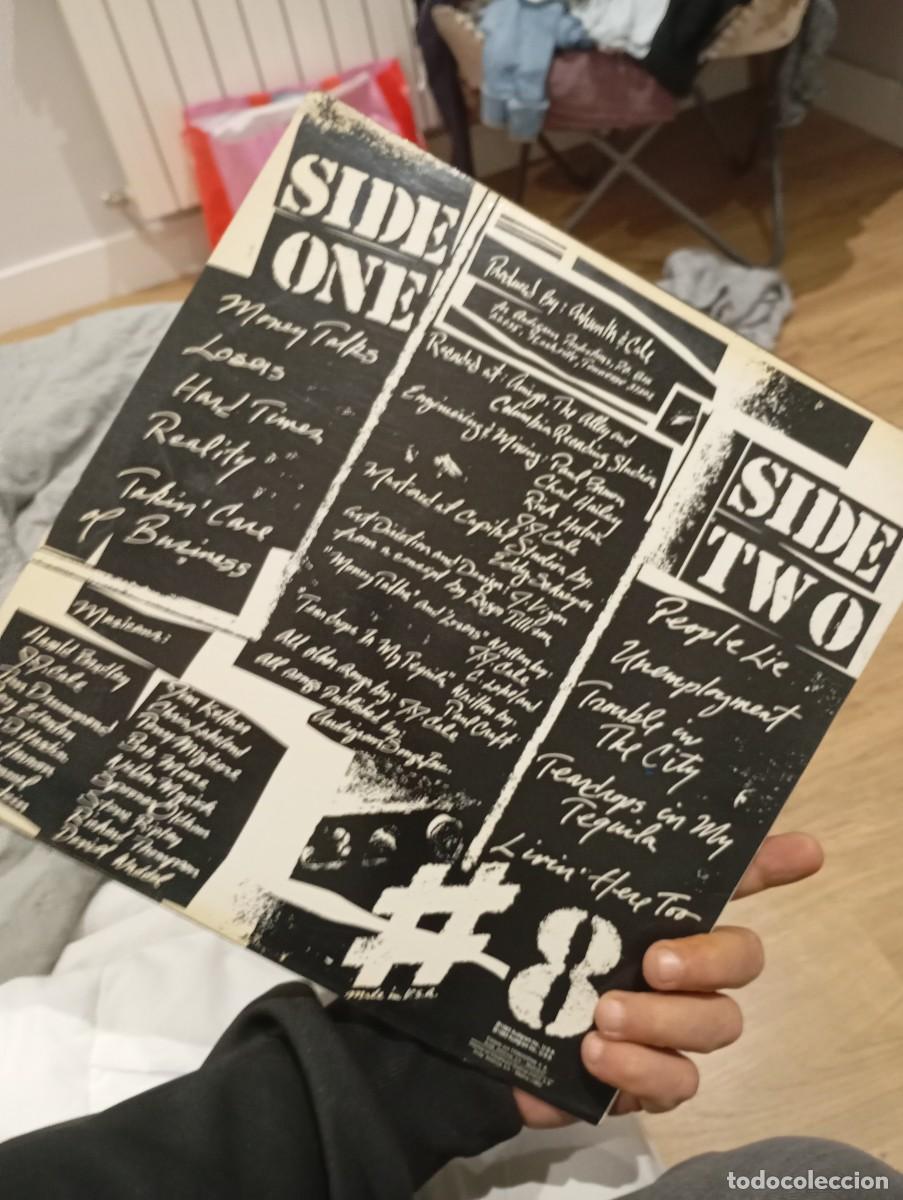 SIDE
ONE
Money Talks
Losers
Hard Times
Reality
Takin' Care
of Business
Musicians:
Harold Bradley
JJ Cale
Drummond
Jim Keltner
Bob Moore
Steve Ripley
Richard Thompson
Produced by: Ashworth & Cale
Nashville, Tennessee
Recorded at: Amigo, The Alley and
Columbia Recording Studios
Engineering & Mixing: Paul Brown
Chad Hailey
JJ Cale
Mastered at Capitol Studios by:
Eddy Schreyer
Art Direction and Design: J. Vigon
from a concept by Roger Tillison
"Money Talks" and "Losers" Written by:
JJ Cale, C. Lakeland
"Teardrops In My Tequila" Written by:
Paul Craft
All other songs by: JJ Cale
All songs Published by:
Audigram Songs Inc.
SIDE
TWO
People Lie
Unemployment
Trouble in
The City
Teardrops in My
Tequila
Livin' Here Too
#8
Made in U.S.A.
todocoleccion